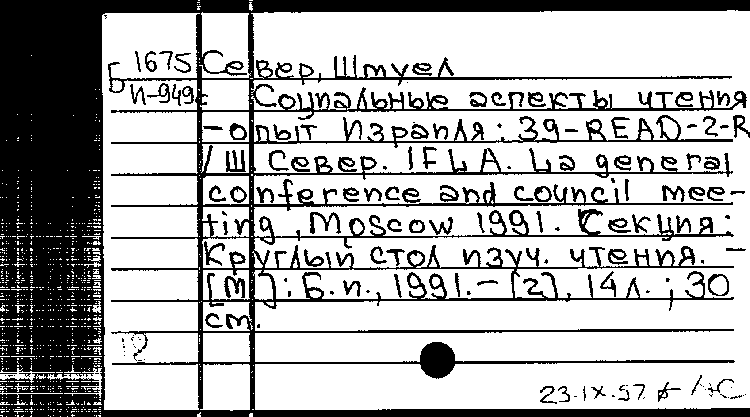 Б 1675 Север, Шмуел
И-949с Социальные аспекты чтения
-опыт Израиля : 39-READ-2-R
/ Ш. Север. IFLA. La general
conference and council mee-
ting, Moscow 1991. Секция:
Круглый стол изуч. чтения. -
[М]: Б.и., 1991.- [2], 14 л. ; 30
см.
12
23.IX.97